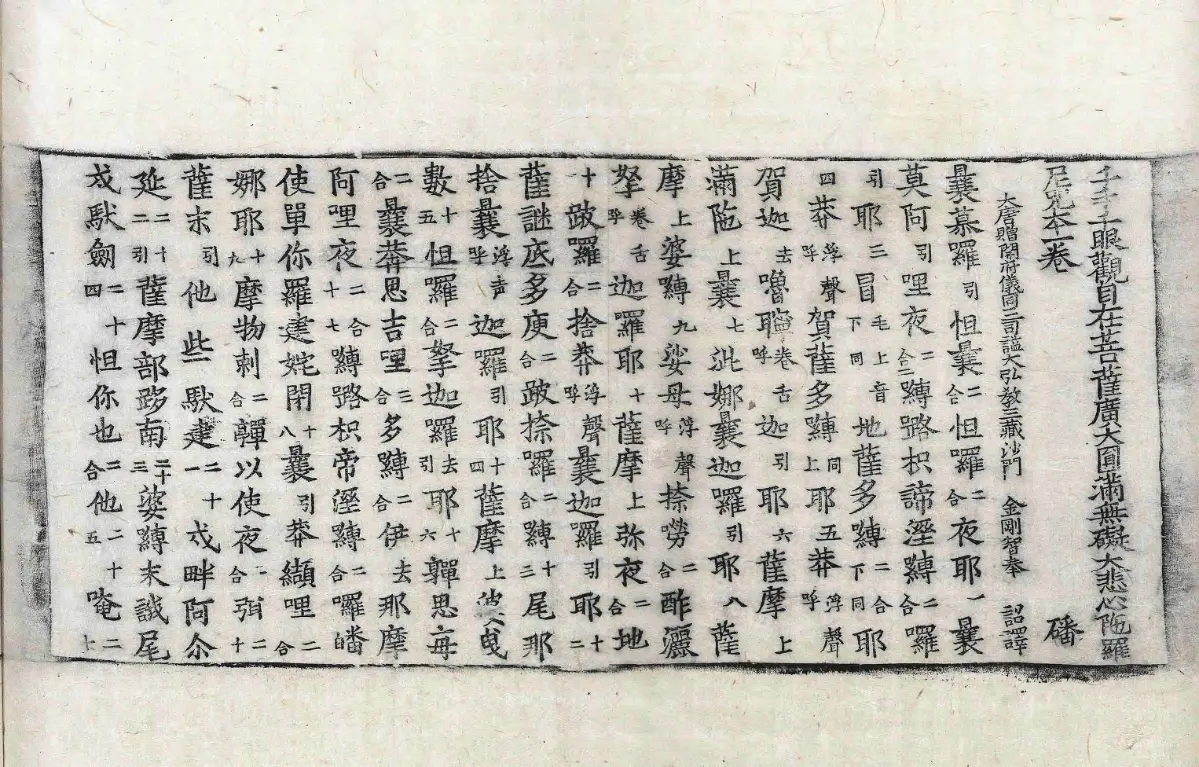 千手千眼觀自在菩薩廣大圓滿無礙大悲心陁羅
尼呪本一卷 磻
大唐贈開府儀同三司謚大弘教三藏沙門 金剛智奉 詔譯
曩慕羅引怛曩二合怛羅二合夜耶一曩
莫阿引哩夜二合二嚩路枳諦溼嚩二合羅
引耶三冒毛上音下同地薩多嚩二合下同耶
四莽浮聲呼賀薩多嚩同上耶五莽浮聲呼
賀迦去嚕聹卷舌呼迦引耶六薩摩上
滿陁上曩七泚娜曩迦羅引耶八薩
摩上婆嚩九娑母浮聲呼捺勞二合酢灑
拏卷舌呼迦羅耶十薩摩上弥夜二合地
十跛羅二合捨莽浮聲呼曩迦羅引耶十二
薩謎底多庾二合跛捺羅二合嚩十三尾那
捨曩浮声呼迦羅引耶十四薩摩上波曳
數十五怛羅二合拏迦羅去引耶十六亸思每
二合曩莽思吉哩三合多嚩二合伊去那摩
阿哩夜二合十七嚩路枳帝溼嚩二合羅皤
使單你羅建姹閈十八曩引莽纈哩二合
娜耶十九摩物刺二合亸以使夜二合弭二十
薩末引他些馱建二十一戍畔阿尒
延二十二引薩摩部跢南二十三婆嚩末誐尾
戍馱劍二十四怛你也二合他二十五唵二十